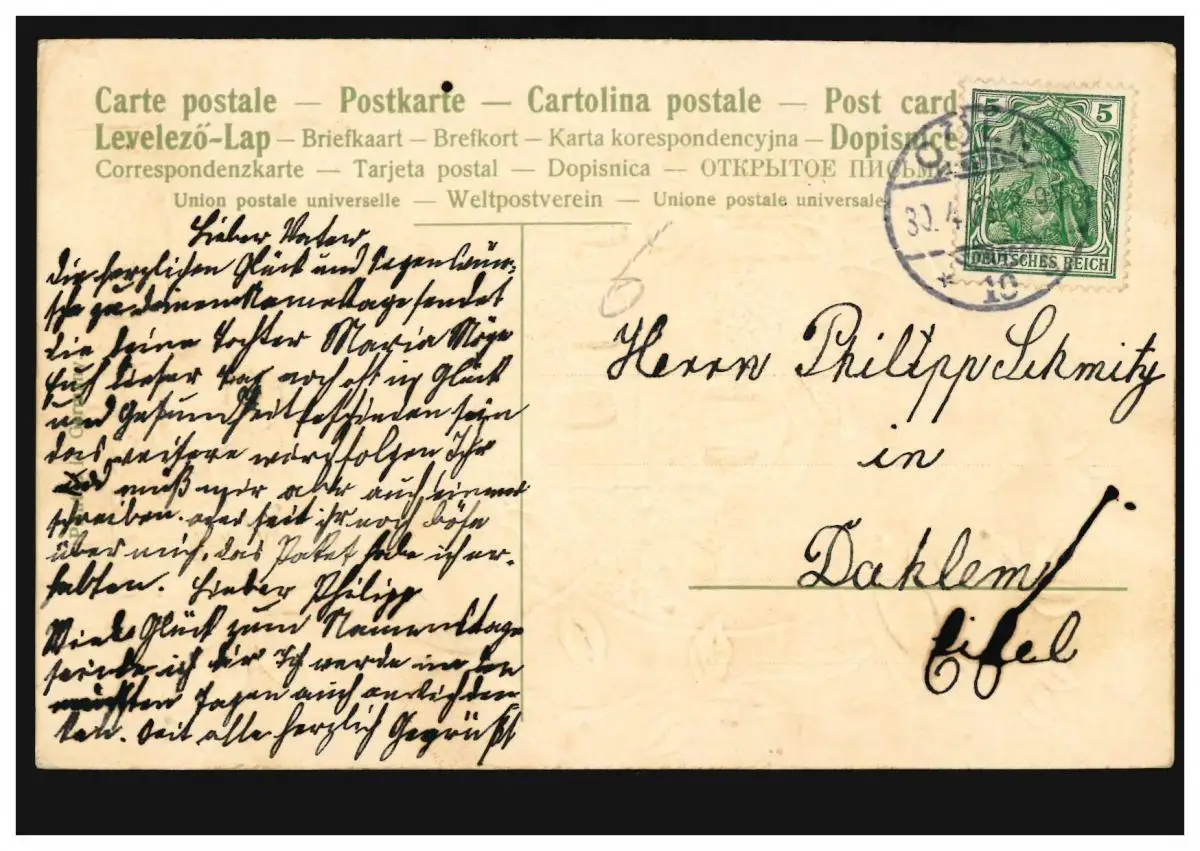 Carte postale — Postkarte — Cartolina postale — Post card
Levelező-Lap — Briefkaart — Brefkort — Karta korespondencyjna — Dopisnice
Correspondenzkarte — Tarjeta postal — Dopisnica — ОТКРЫТОЕ ПИСЬМО
Union postale universelle — Weltpostverein — Unione postale universale
5 5
DEUTSCHES REICH
CÖLN
30. 4.
* 10
Lieber Vater
Die herzlichen Glück und Segenswün-
sche zu deinem Namestage sendet
die deine Tochter Maria Möge
Euch dieser Tag noch oft in Glück
und Gesundheit beschieden sein
das weitere wird folgen Ihr
müß mir aber auch einmal
schreiben. oder seit ihr noch böse
über mich, das Paket habe ich er-
halten. Lieber Philipp
Viel Glück zum Namenstage
sende ich dir Ich werde in den
Tagen auch an dich den
ken. Seit alle herzlich Gegrüßt
Herrn Philipp Schmitz
in
Dahlem
Eifel